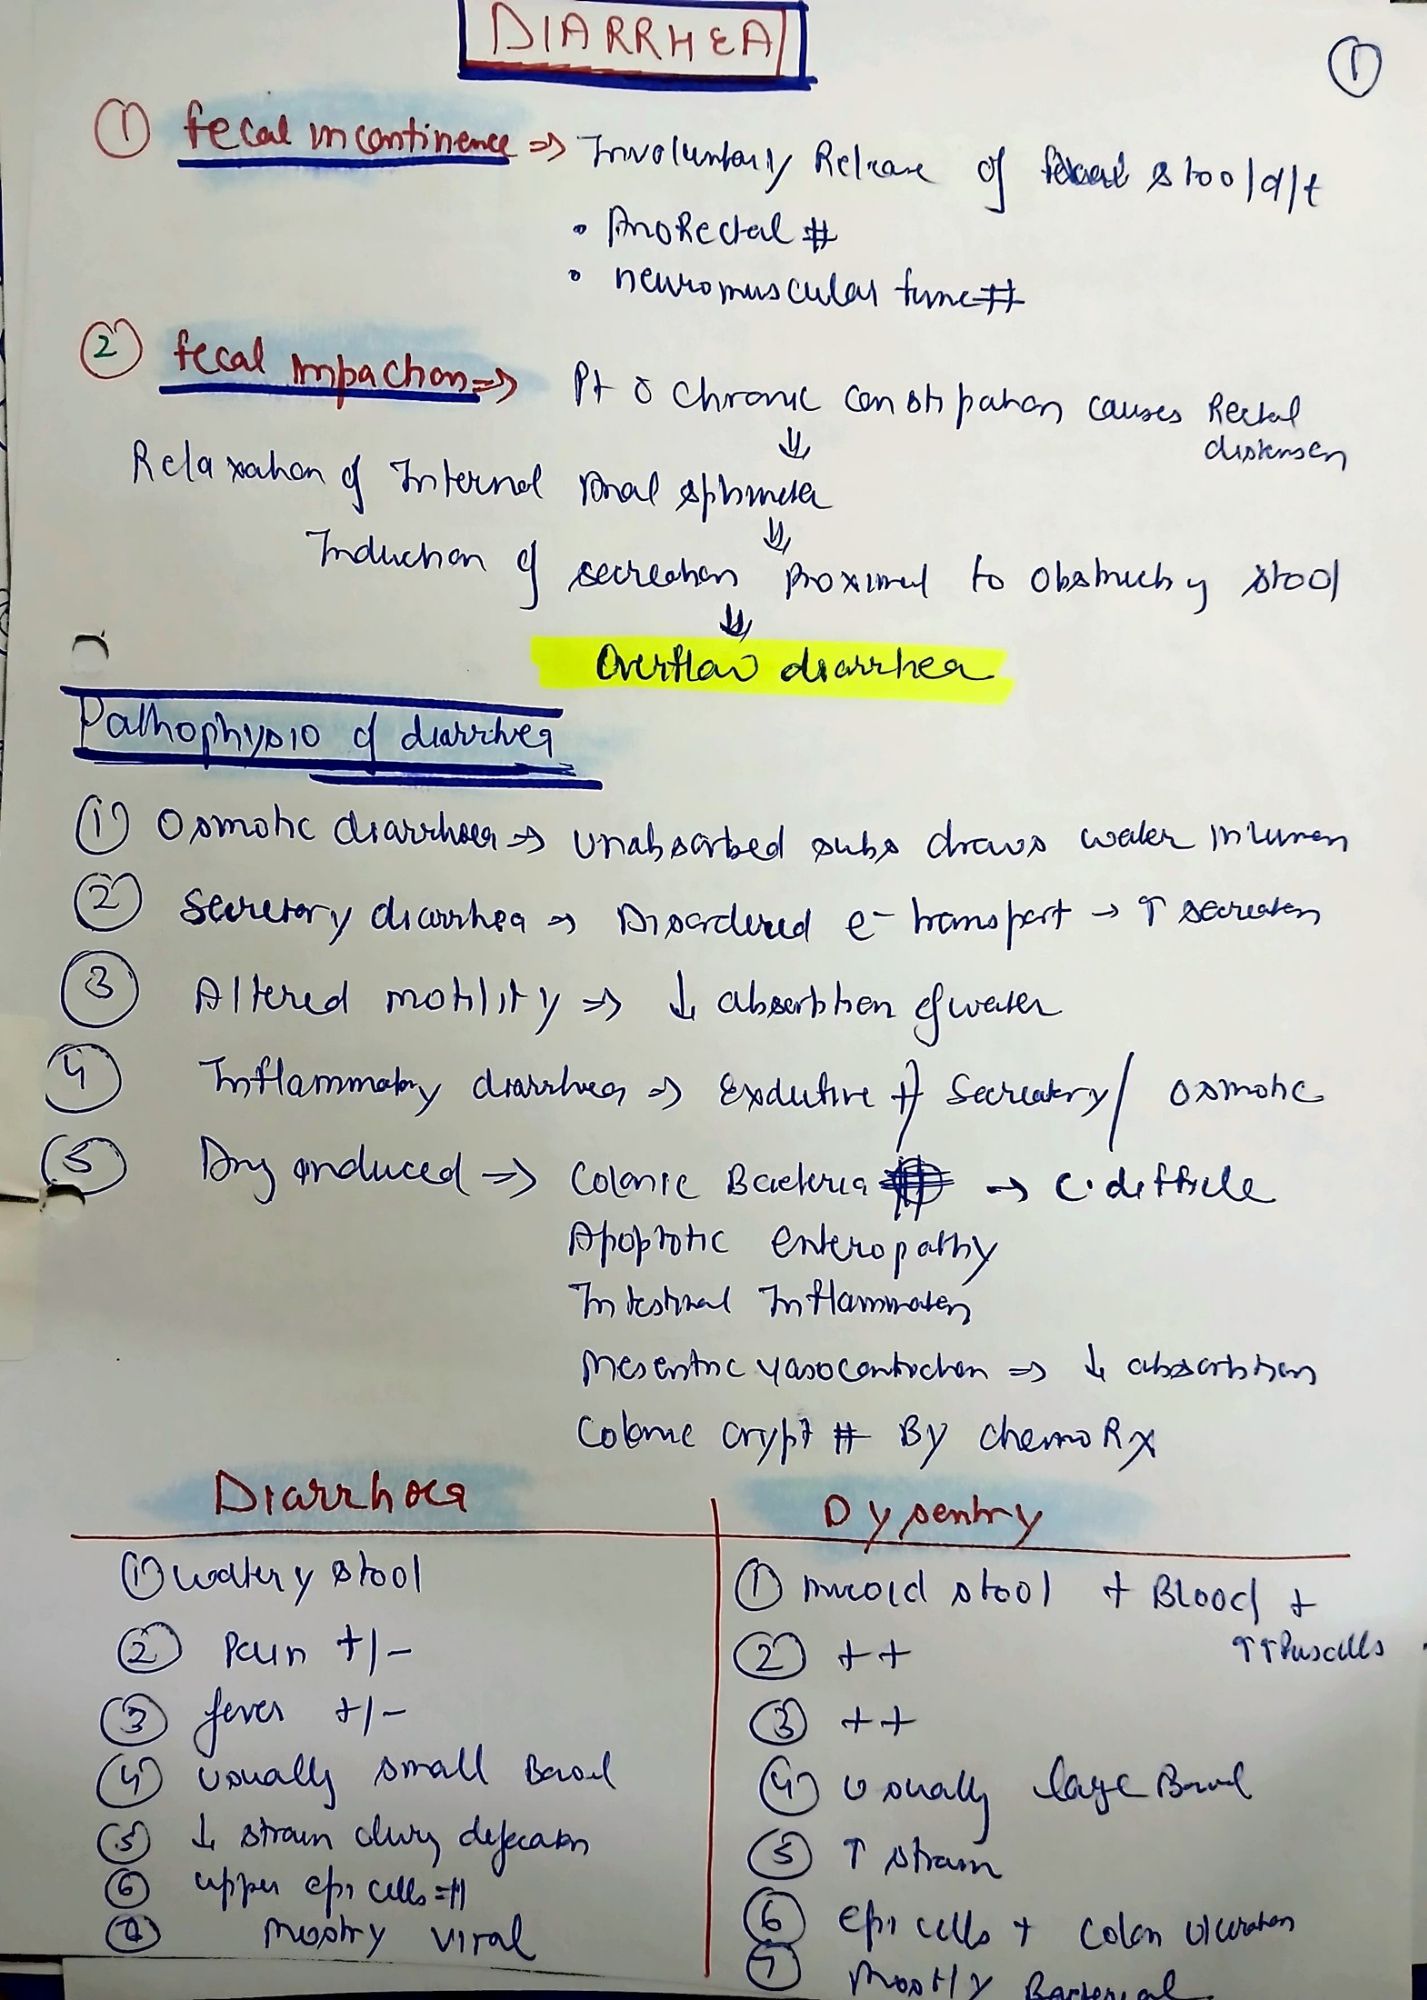 DIARRHEA
①
① fecal incontinence ⇒ Involuntary Release of stool d/t
• AnoRectal #
• neuromuscular func #
② fecal Impaction ⇒ Pt c̄ chronic constipation causes Rectal
distension
⇓
Relaxation of Internal Anal sphincter
⇓
Induction of secreation proximal to obstructing stool
⇓
Overflow diarrhea
Pathophysio of diarrhea
① Osmotic diarrhoea ⇒ unabsorbed subs draws water in lumen
② Secretory diarrhea ⇒ Disordered e- transport → ↑ secreation
③ Altered motility ⇒ ↓ absorbtion of water
④ Inflammatory diarrhea ⇒ Exdutive + Secreatory / osmotic
⑤ Drug induced ⇒ Colonic Bacteria # → C. difficle
Apoptotic enteropathy
Intestinal Inflammation
Mesentric vasocontriction ⇒ ↓ absorbtion
Colonic crypt # By chemo Rx
Diarrhoea | Dysentry
① watery stool | ① mucoid stool + Blood +
↑↑ Puscells
② Pain +/- | ② ++
③ fever +/- | ③ ++
④ usually small Bowel | ④ Usually large Bowel
⑤ ↓ strain during defecation | ⑤ ↑ strain
⑥ upper epi cells # | ⑥ epi cells + colon ulceration
⑦ mostry viral | ⑦ Mostly Bacterial